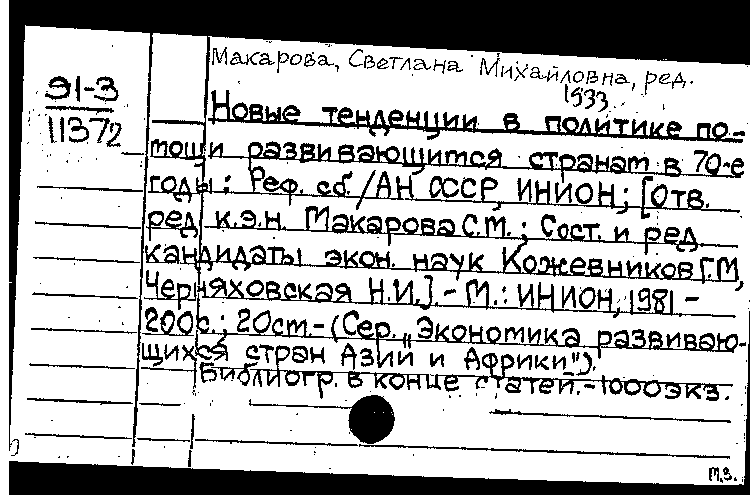 Макарова, Светлана Михайловна, ред.
1933
Э1-3
11372
Новые тенденции в политике по-
мощи развивающимся странам в 70-е
годы: Реф. сб./АН СССР, ИНИОН; [Отв.
ред. к.э.н. Макарова С.М.; Сост. и ред.
кандидаты экон. наук Кожевников Г.М,
Черняховская Н.И.].- М.: ИНИОН, 1981.-
200с.; 20см.- (Сер. „Экономика развиваю-
щихся стран Азии и Африки").
Библиогр. в конце статей.- 1000экз.
М.З.